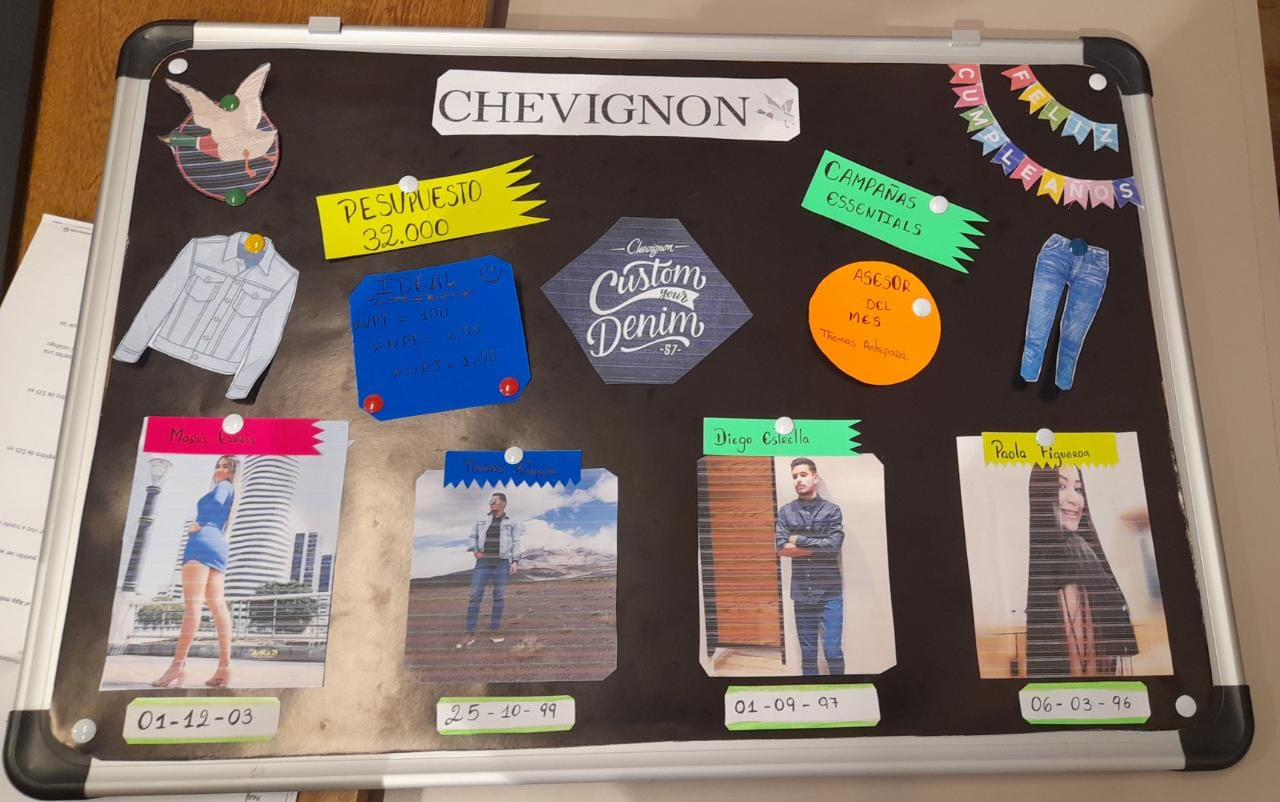 CHEVIGNON
FELIZ
CUMPLEAÑOS
PESUPUESTO
32.000
CAMPAÑAS
ESSENTIALS
IDEAL
*VPT = 100
*UPT = 2,00
*UPJ = 1,00
Chevignon
Custom
your
Denim
-57-
ASESOR
DEL
MES
Thomas Antepara
Maria García
Thomas Antepara
Diego Estrella
Paola Figueroa
01-12-03
25-10-99
01-09-97
06-03-96